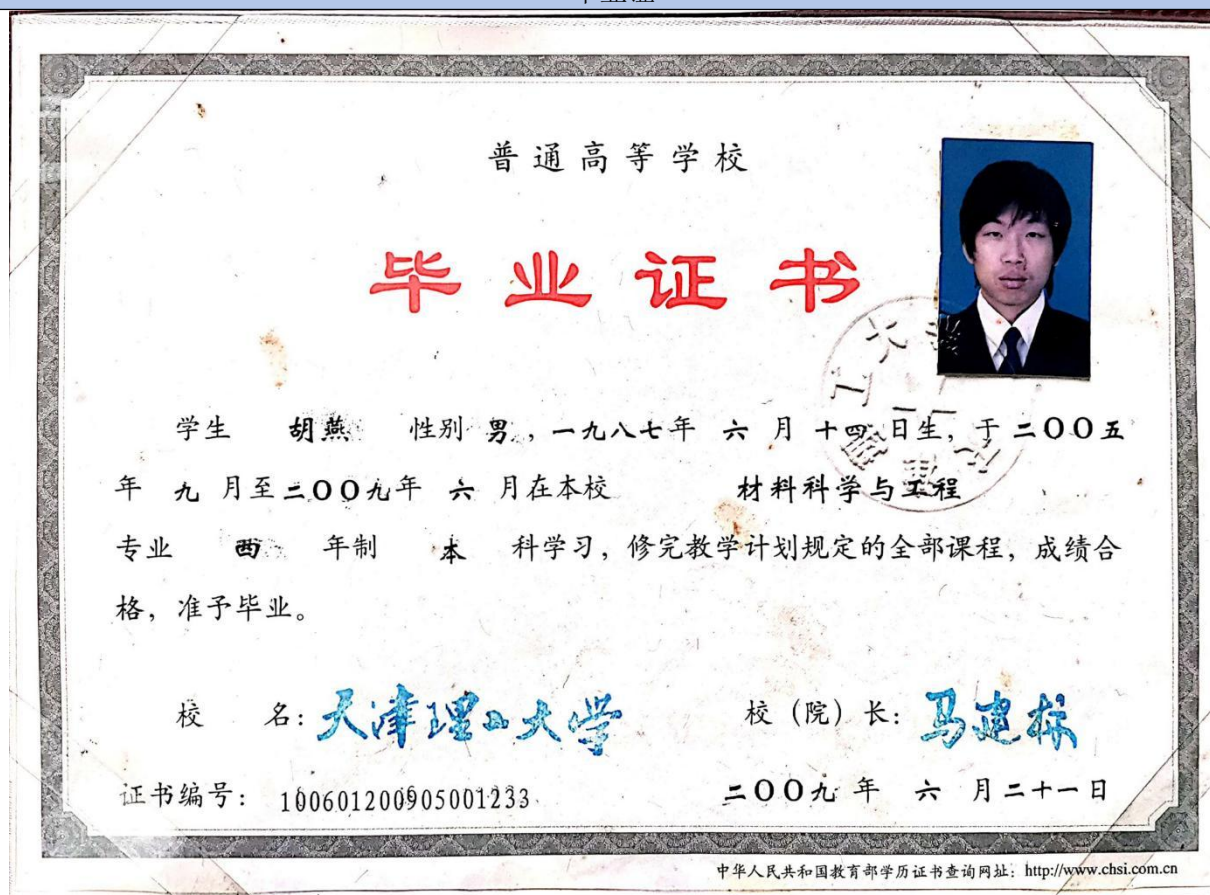 普通高等学校
毕业证书
学生 胡燕 性别 男，一九八七年 六 月 十四 日生，于二〇〇五
年 九 月至二〇〇九年 六 月在本校 材料科学与工程
专业 西 年制 本 科学习，修完教学计划规定的全部课程，成绩合
格，准予毕业。
校 名：天津理工大学 校（院）长：马建标
证书编号：100601200905001233 二〇〇九 年 六 月二十一日
中华人民共和国教育部学历证书查询网址：http://www.chsi.com.cn